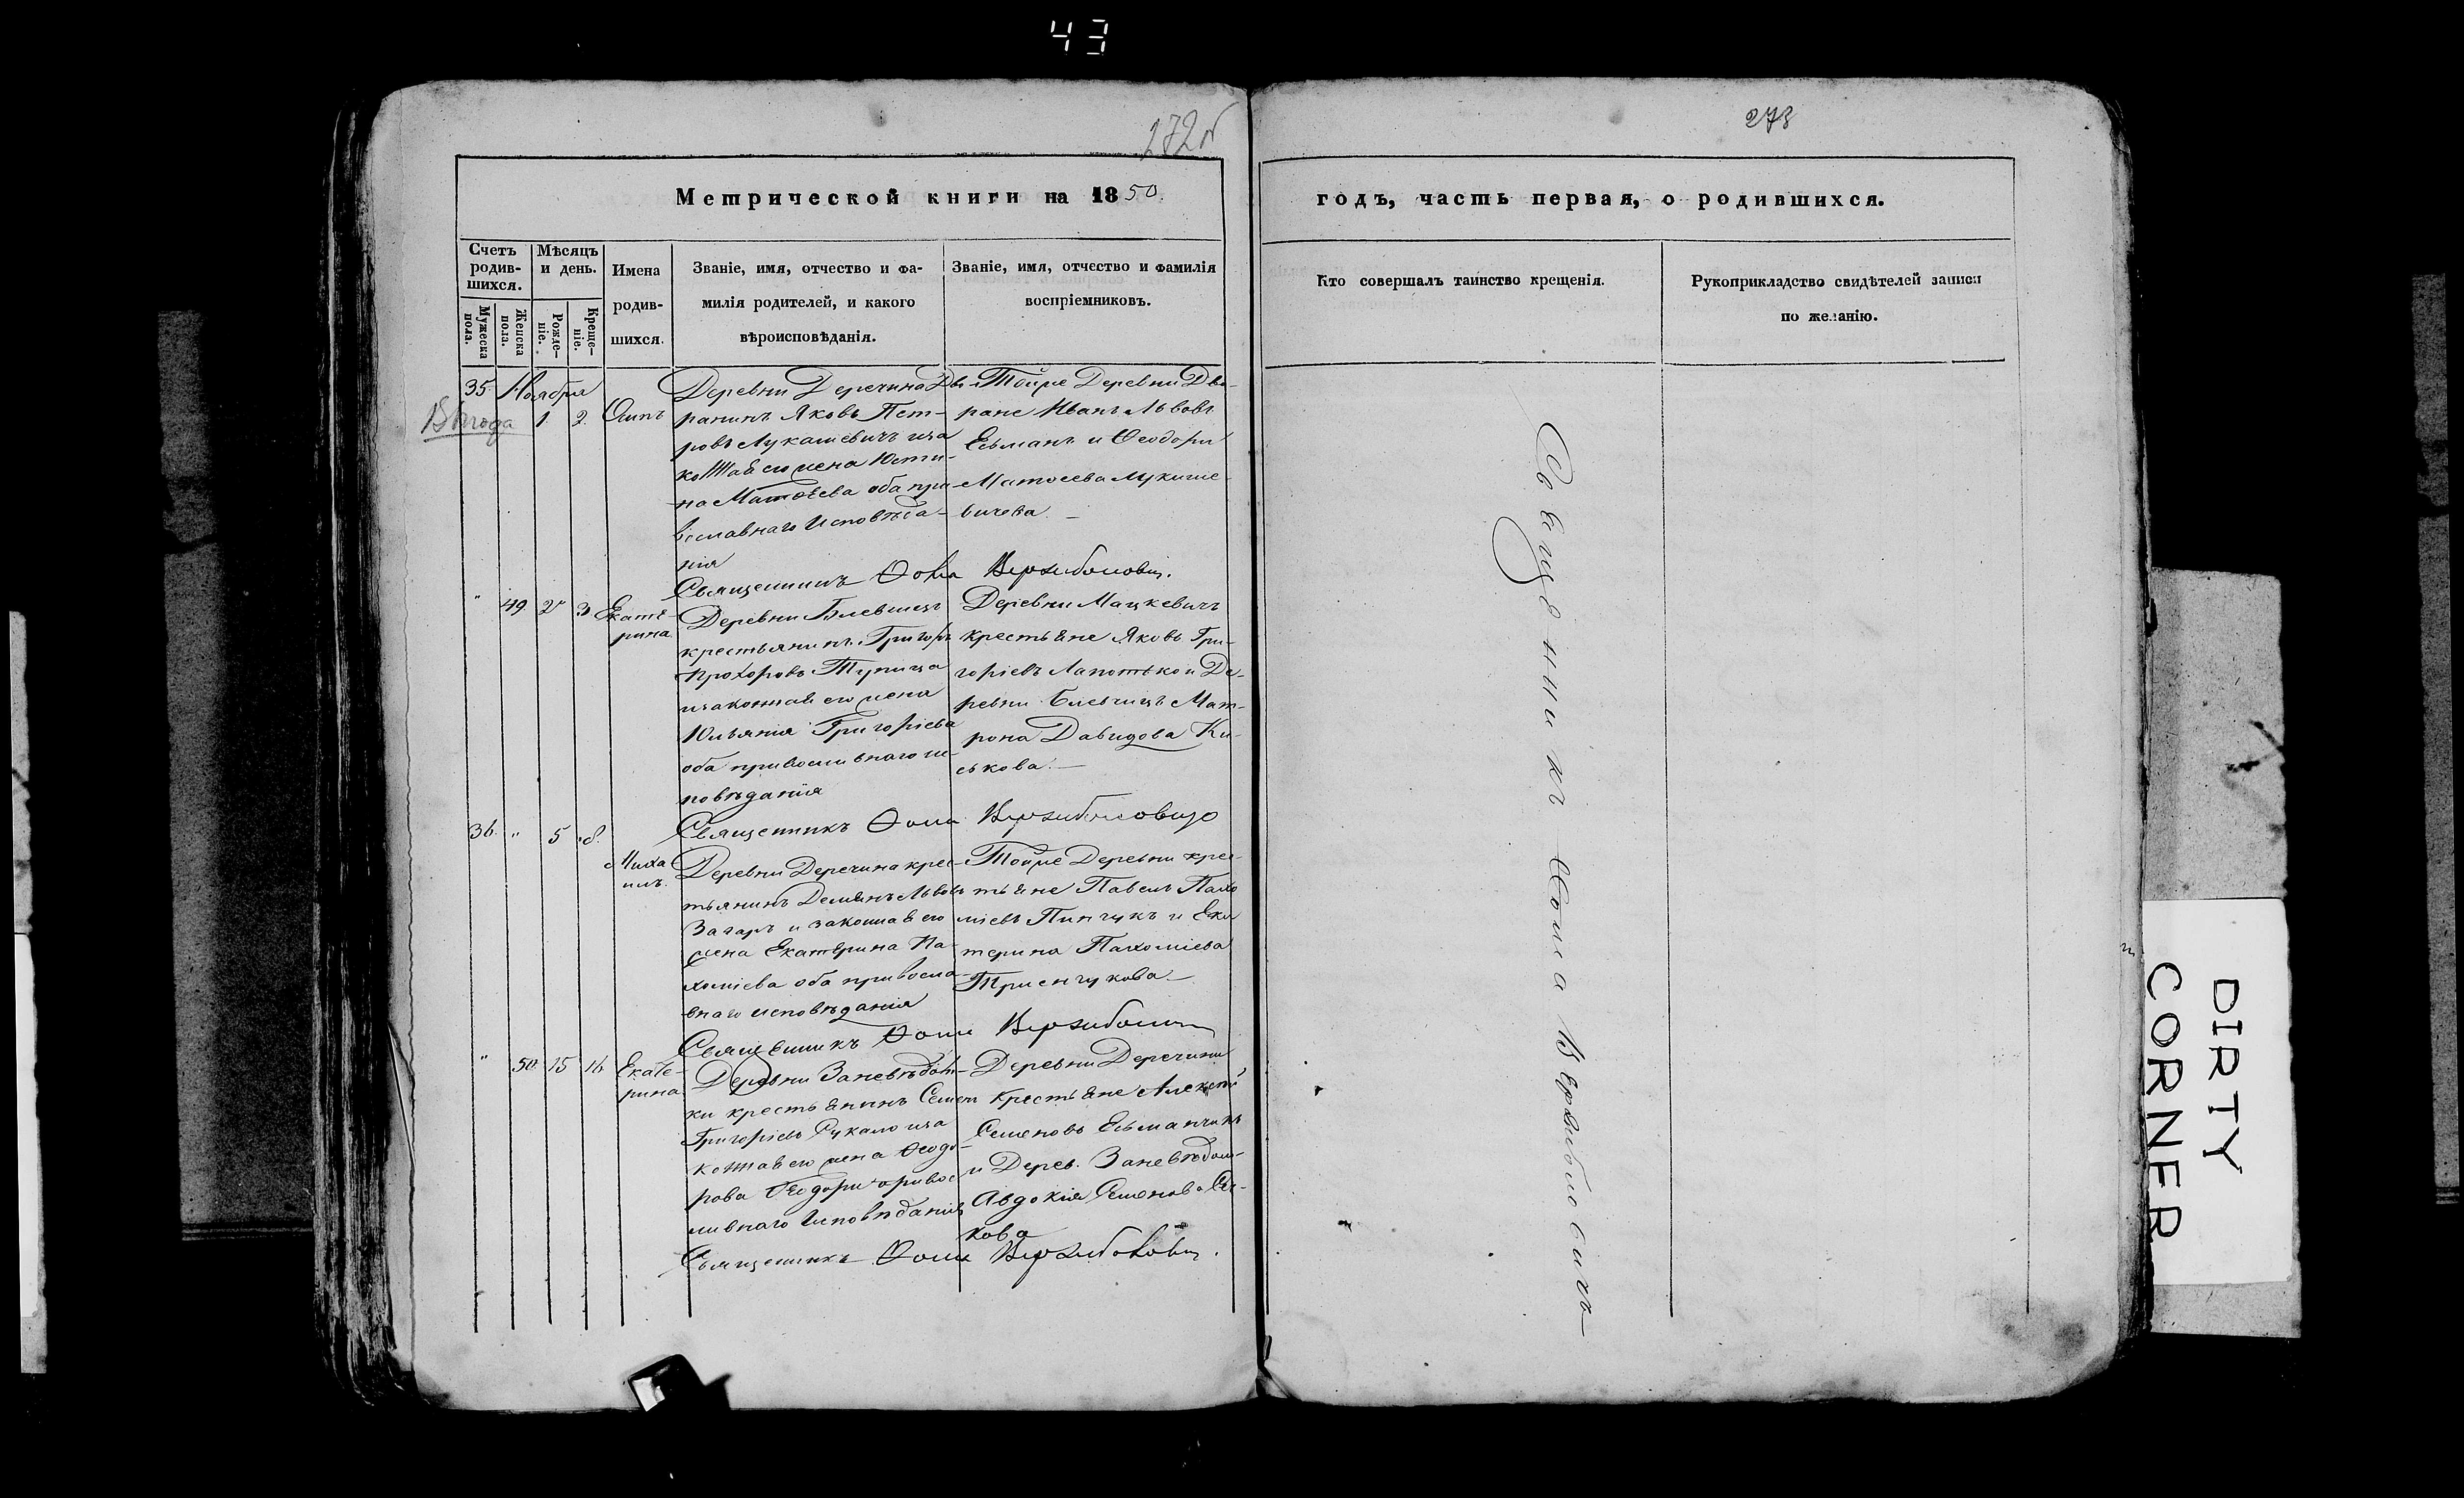 43
272
273
Метрической книги на 1850.
годъ, часть первая, о родившихся.
Счетъ родив-шихся.
Мѣсяцъ и день.
Имена родив-шихся.
Званіе, имя, отчество и фа-
милія родителей, и какого
вѣроисповѣданія.
Званіе, имя, отчество и фамилія
воспріемниковъ.
Кто совершалъ таинство крещенія.
Рукоприкладство свидѣтелей записи
по желанію.
Мужеска пола.
Женска пола.
Рожде-ніе.
Креще-ніе.
35. Ноября
1. 2. Осипъ
Деревни Деречина Дво-
рянинъ Яковъ Пет-
ровъ Лукашевичъ иза
кон̃ая его жена Юсти-
на Матѳеева оба пра-
вославнаго Исповѣда-
нія
Тойже Деревни Дво-
ряне Иванъ Львовъ
Есьманъ и Ѳеодора
Матѳеева Лукаше-
вичева.
Священникъ Ѳома Вержболовичъ.
" 49. 2 3 Екате-
рина
Деревни
крестьянинъ Григорій
Прохоровъ Тупица
изаконная его жена
Юльянія Григоріева
оба православнаго ис-
повѣданія
Деревни Мацкевичъ
крестьяне Яковъ Гри-
горіевъ Лапотько и Де-
ревни Мат-
рона Давидова Ки-
ськова.
Священникъ Ѳома Вержболовичъ
36. " 5 8.
Миха
илъ.
Деревни Деречина крес-
тьянинъ Демьянъ Львовъ
Загаръ и законная его
жена Екатерина Па-
хоміева оба правосла-
внаго исповѣданія
Тойже Деревни крес-
тьяне Павелъ Пахо
міевъ Пинчукъ и Ека
терина Пахоміева
Священникъ Ѳома Вержболовичъ
" 50. 15 16 Екате-
рина
Деревни
ки крестьянинъ Семенъ
Григоріевъ иза
кон̃ая его жена Ѳеодо-
ра правос
лавнаго Исповѣданія
Деревни Деречина
Крестьяне Алексѣй
Семеновъ Есьманчикъ
и Дерев.
Авдокія Семенова
кова
Священникъ Ѳома Вержболовичъ.
Священникъ Ѳома Вержболовичъ
DIRTY
CORNER